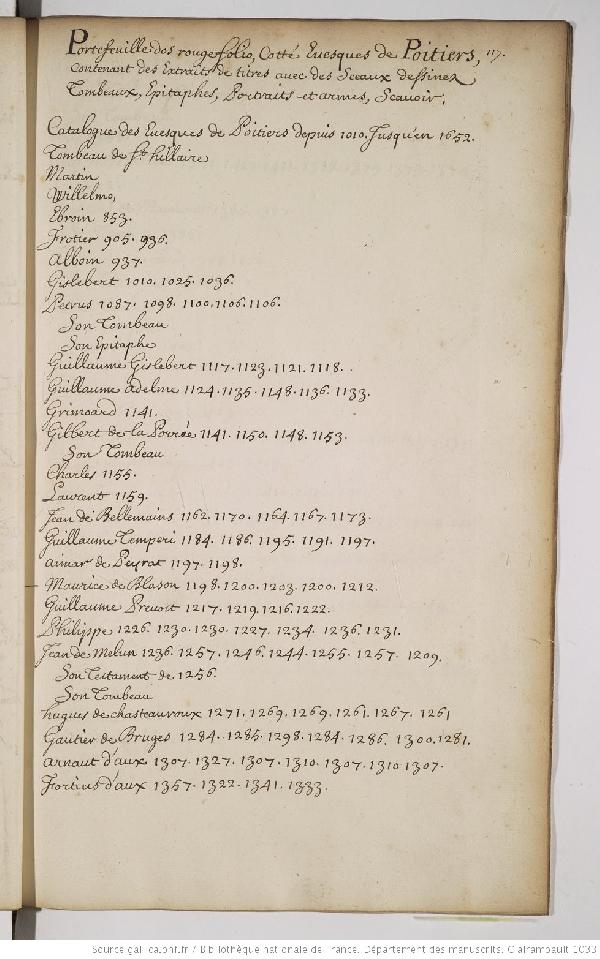 Portefeuille dos rouge folio, Cotté Euesques de Poitiers, 117.
contenant des Extraits de titres avec des Sceaux dessinez
Tombeaux, Epitaphes, Portraits et armes, Scauoir,
Catalogue des Euesques de Poitiers depuis 1010. Jusqu'en 1652.
Tombeau de St. hillaire
Martin
Willelme,
Ebroin 853.
Frotier 905. 936.
Alboin 937.
Gislebert 1010. 1025. 1036.
Petrus 1087. 1098. 1100. 1106. 1106.
Son Tombeau
Son Epitaphe
Guillaume Gislebert 1117. 1123. 1121. 1118.
Guillaume adelme 1124. 1135. 1148. 1136. 1133.
Grimoard 1141.
Gilbert de la Porrée 1141. 1150. 1148. 1153.
Son Tombeau
Charles 1155.
Laurent 1159.
Jean de Bellemains 1162. 1170. 1164. 1167. 1173.
Guillaume Temperi 1184. 1186. 1195. 1191. 1197.
aimar de Peyrat 1197. 1198.
Maurice de Blason 1198. 1200. 1203. 1200. 1212.
Guillaume Preuost 1217. 1219. 1216. 1222.
Philippe 1226. 1230. 1230. 1227. 1234. 1236. 1231.
Jean de Melun 1236. 1257. 1246. 1244. 1255. 1257. 1209.
Son Testament de 1256.
Son Tombeau
hugues de chasteauroux 1271. 1269. 1269. 1261. 1267. 1261
Gautier de Bruges 1284. 1285. 1298. 1284. 1286. 1300. 1281.
arnaut d'aux 1307. 1327. 1307. 1310. 1307. 1310. 1307.
Fortius d'aux 1357. 1322. 1341. 1333.
Source gallica.bnf.fr / Bibliothèque nationale de France. Département des manuscrits. Clairambault 1033